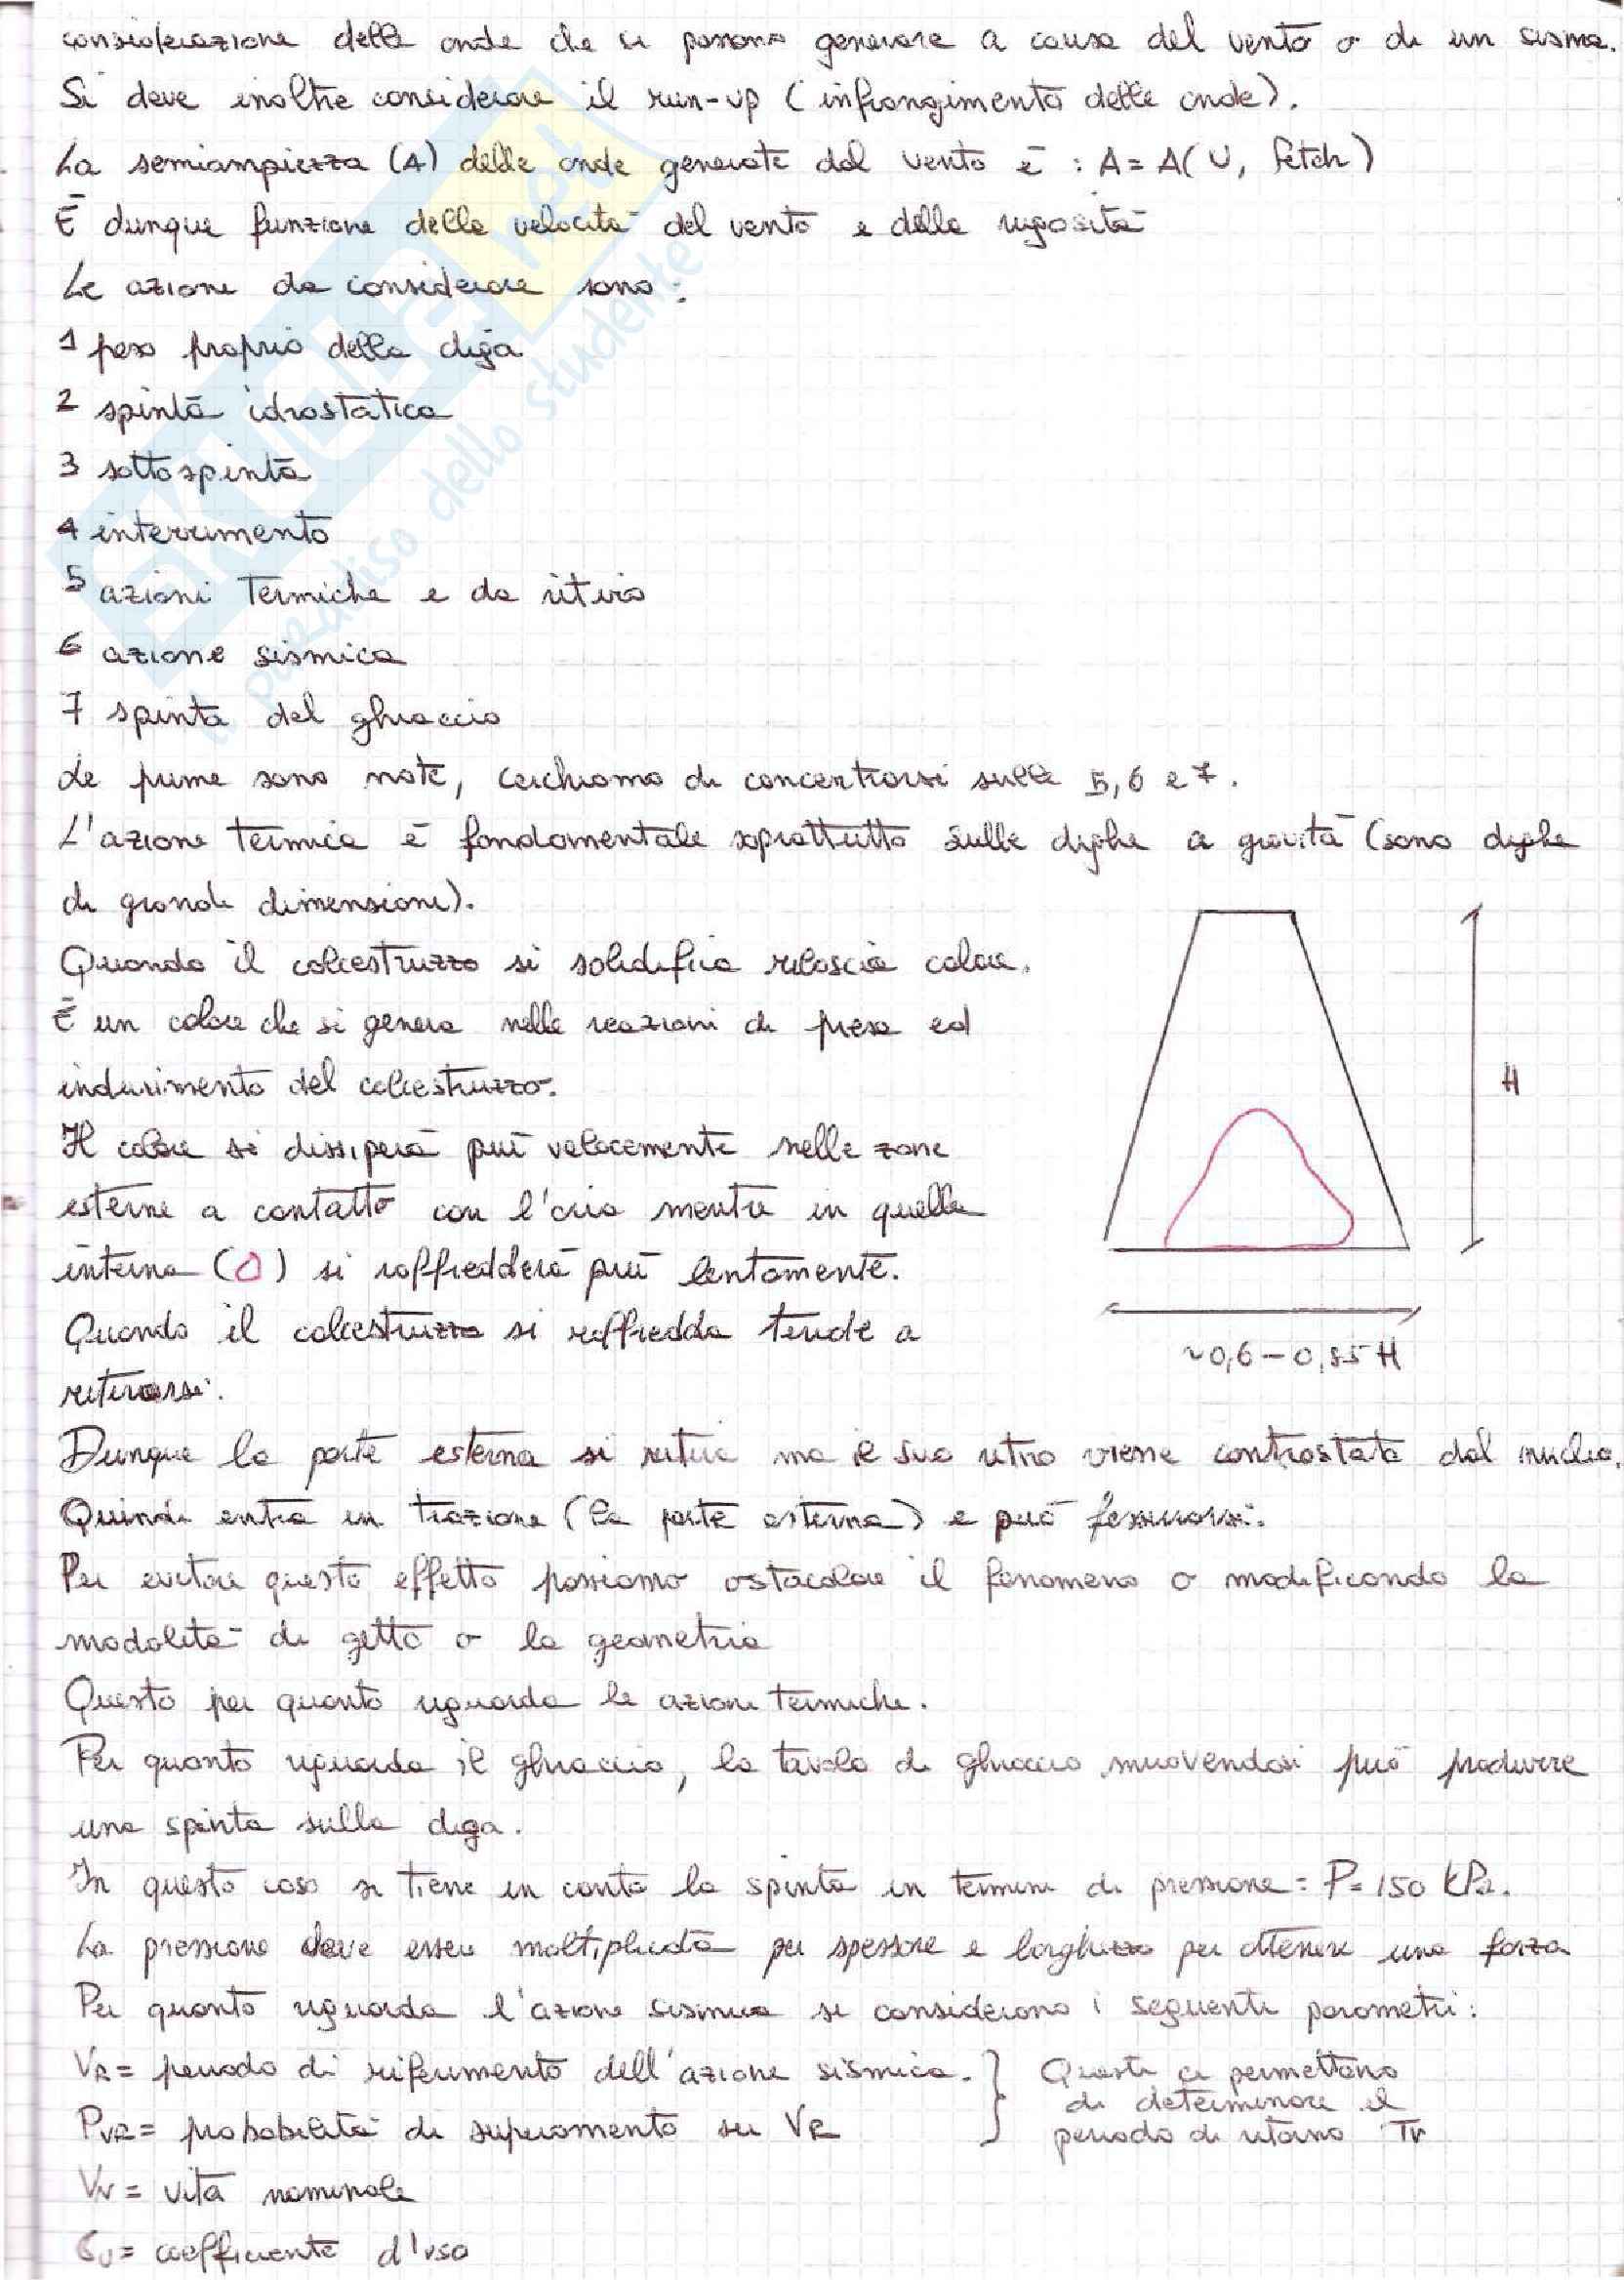 considerazione delle onde che si possono generare a causa del vento o di un sisma.
Si deve inoltre considerare il run-up (infrangimento delle onde).
La semiampiezza (A) delle onde generate dal vento è : A = A(U, fetch)
È dunque funzione della velocità del vento e della rugosità
Le azione da considerare sono:
1 peso proprio della diga
2 spinta idrostatica
3 sottospinta
4 interrimento
5 azioni termiche e da ritiro
6 azione sismica
7 spinta del ghiaccio
Le prime sono note, cerchiamo di concentrarsi sulle 5, 6 e 7.
L'azione termica è fondamentale soprattutto sulle dighe a gravità (sono dighe
di grandi dimensioni).
Quando il calcestruzzo si solidifica rilascia calore.
È un calore che si genera nelle reazioni di presa ed
indurimento del calcestruzzo.
Il calore si dissiperà più velocemente nelle zone
esterne a contatto con l'aria mentre in quelle
interne ( ) si raffredderà più lentamente.
Quando il calcestruzzo si raffredda tende a
ritirarsi.
H
~0,6 - 0,85 H
Dunque la parte esterna si ritira ma il suo ritiro viene contrastato dal nucleo.
Quindi entra in trazione (la parte esterna) e può fessurarsi.
Per evitare questo effetto possiamo ostacolare il fenomeno o modificando la
modalità di getto o la geometria
Questo per quanto riguarda le azioni termiche.
Per quanto riguarda il ghiaccio, la tavola di ghiaccio muovendosi può produrre
una spinta sulla diga.
In questo caso si tiene in conto la spinta in termini di pressione: P = 150 kPa.
La pressione deve essere moltiplicata per spessore e larghezza per ottenere una forza
Per quanto riguarda l'azione sismica si considerano i seguenti parametri:
VR = periodo di riferimento dell'azione sismica.
PVR = probabilità di superamento su VR
Questi ci permettono
di determinare il
periodo di ritorno Tr
VN = vita nominale
CU = coefficiente d'uso
SKUOLA.net
il paradiso dello studente